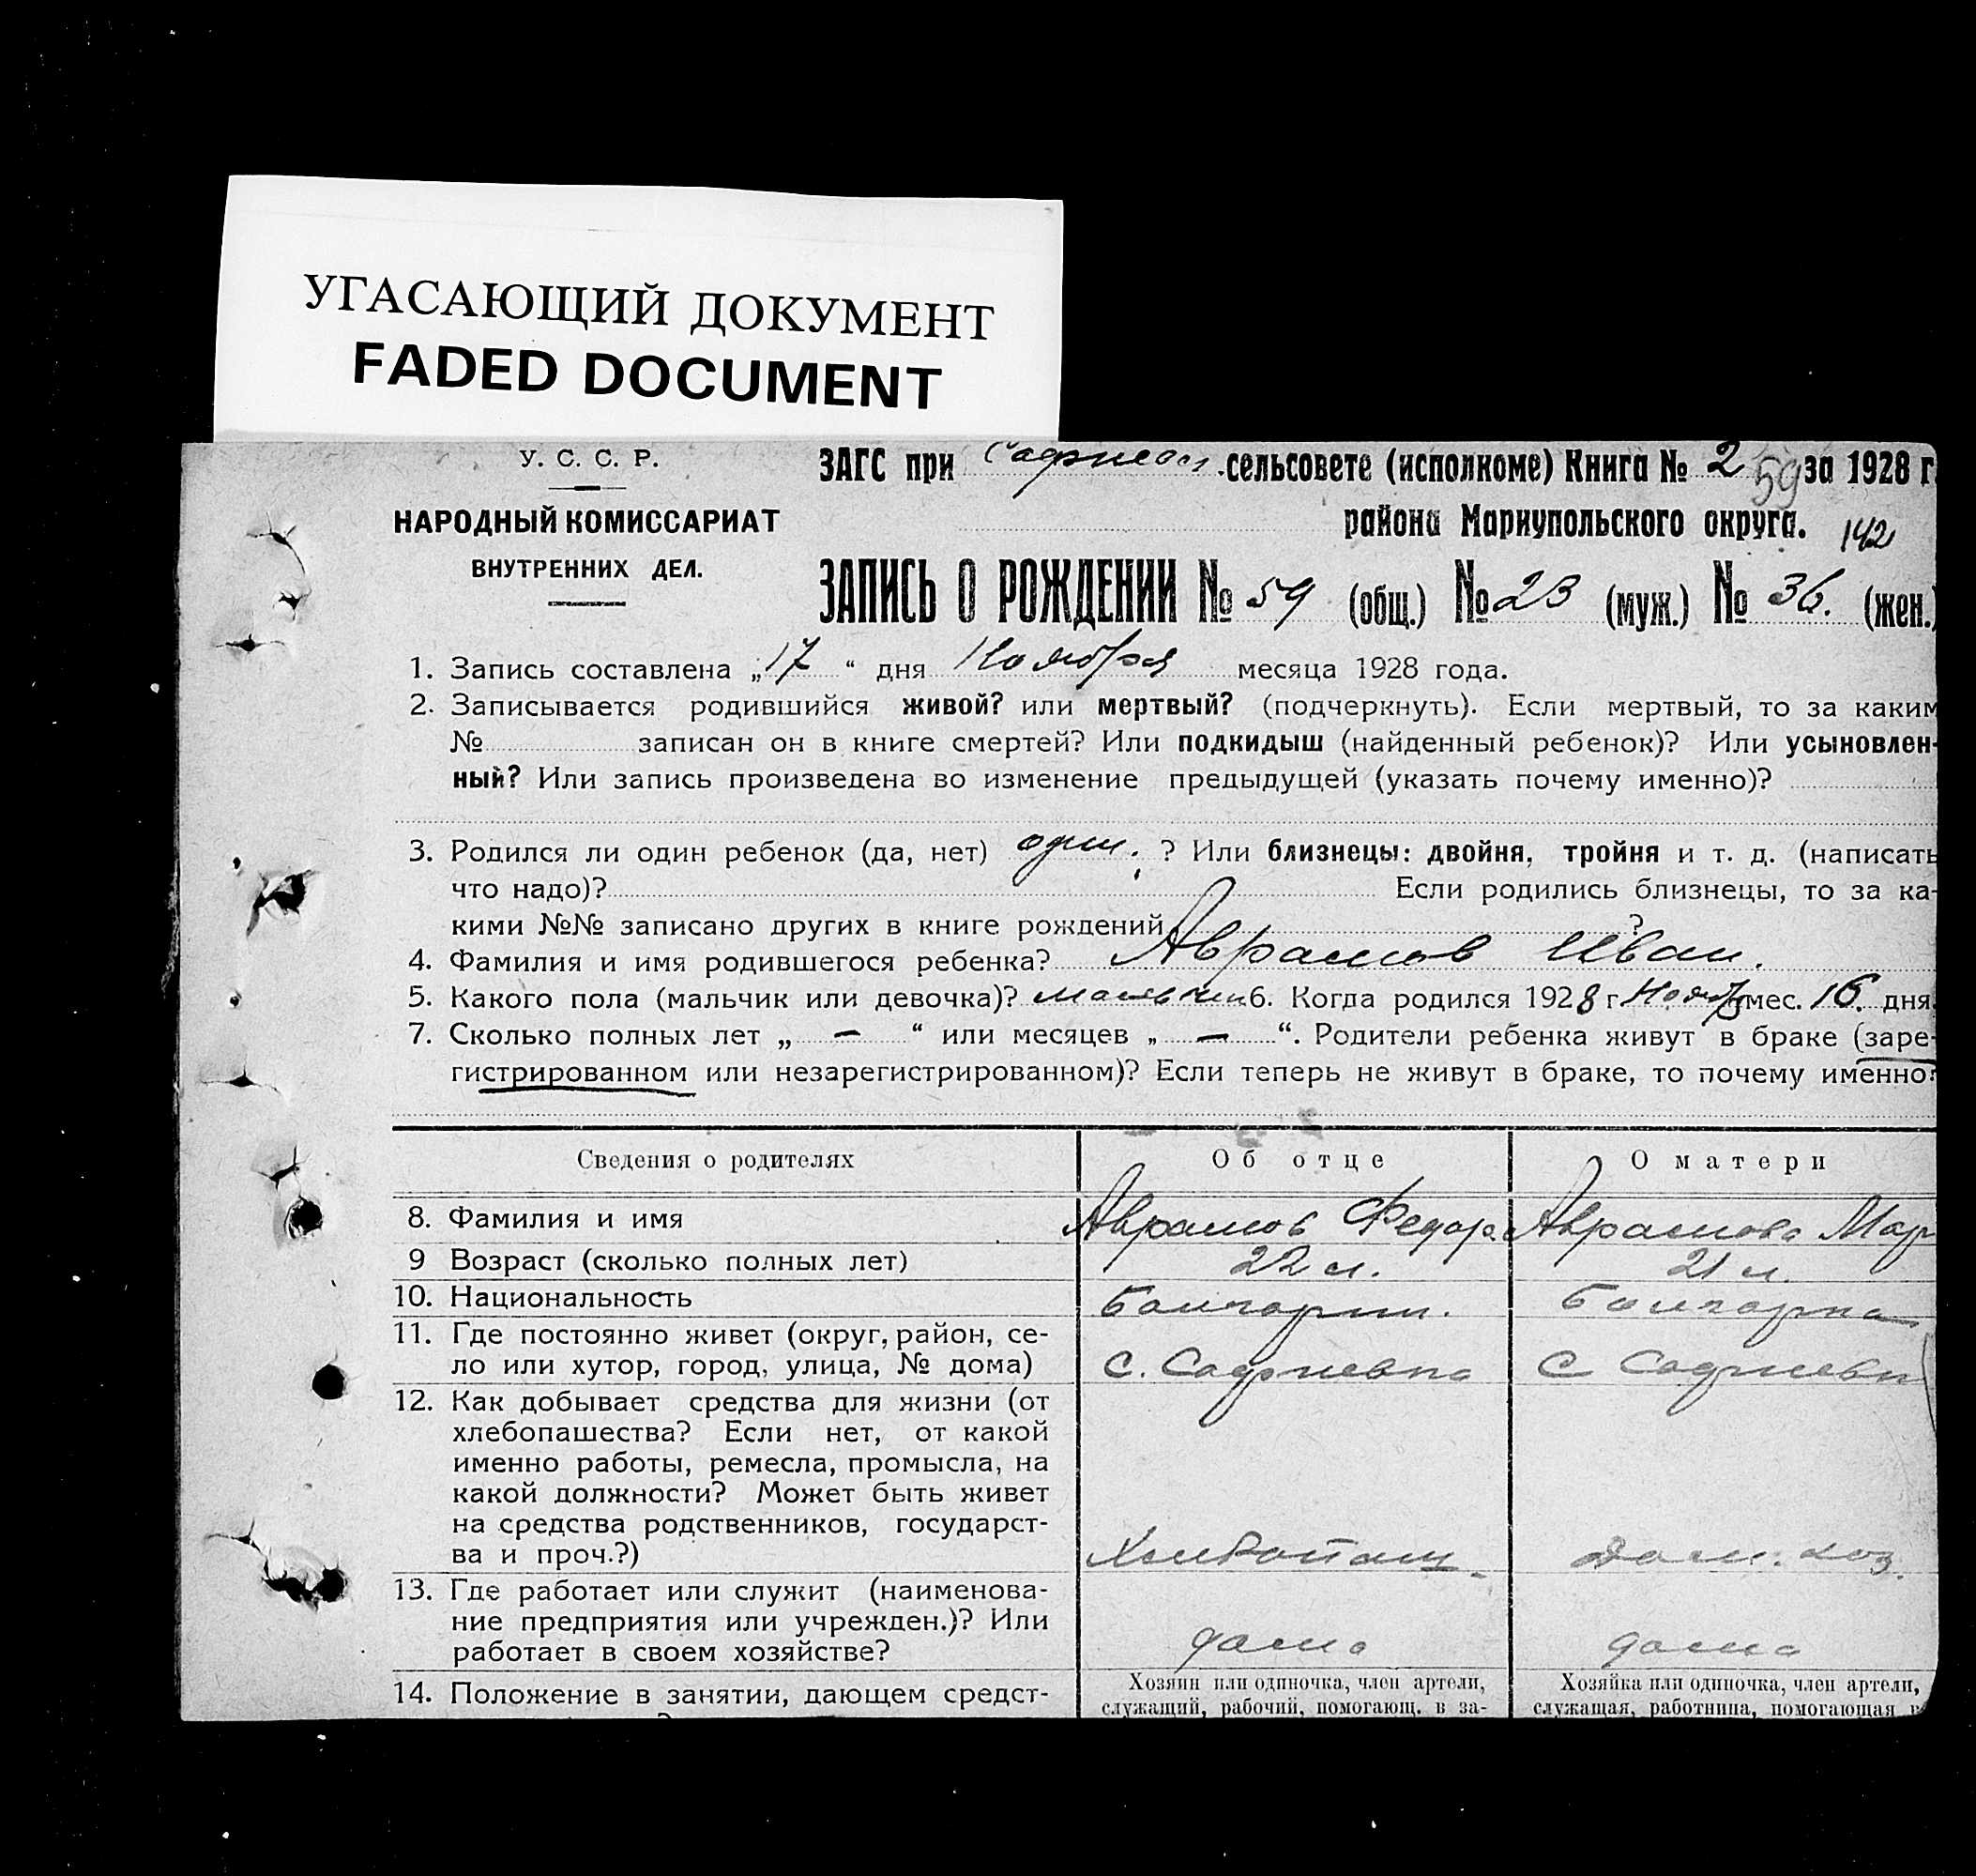 УГАСАЮЩИЙ ДОКУМЕНТ
FADED DOCUMENT
У. С. С. Р.
НАРОДНЫЙ КОМИССАРИАТ
ВНУТРЕННИХ ДЕЛ.
ЗАГС при Софиевск. сельсовете (исполкоме) Книга № 2 за 1928 г.
59
района Мариупольского округа.
142
ЗАПИСЬ О РОЖДЕНИИ № 59 (общ.) № 23 (муж.) № 36. (жен.)
1. Запись составлена „17“ дня Ноября месяца 1928 года.
2. Записывается родившийся живой? или мертвый? (подчеркнуть). Если мертвый, то за каким
№ записан он в книге смертей? Или подкидыш (найденный ребенок)? Или усыновлен-
ный? Или запись произведена во изменение предыдущей (указать почему именно)?
3. Родился ли один ребенок (да, нет) один. ? Или близнецы: двойня, тройня и т. д. (написать
что надо)? Если родились близнецы, то за ка-
кими №№ записано других в книге рождений ?
4. Фамилия и имя родившегося ребенка? Аврамов Иван.
5. Какого пола (мальчик или девочка)? мальчик 6. Когда родился 1928 г. Ноябр мес. 16. дня.
7. Сколько полных лет „ — “ или месяцев „ — “. Родители ребенка живут в браке (заре-
гистрированном или незарегистрированном)? Если теперь не живут в браке, то почему именно?
Сведения о родителях Об отце О матери
8. Фамилия и имя Аврамов Федор. Аврамова Мар
9 Возраст (сколько полных лет) 22 л. 21 л.
10. Национальность Болгарин. Болгарка
11. Где постоянно живет (округ, район, се-
ло или хутор, город, улица, № дома) с. Софиевка с Софиевк
12. Как добывает средства для жизни (от
хлебопашества? Если нет, от какой
именно работы, ремесла, промысла, на
какой должности? Может быть живет
на средства родственников, государст-
ва и проч.?) Хлебопаш. Дом. хоз.
13. Где работает или служит (наименова-
ние предприятия или учрежден.)? Или
работает в своем хозяйстве? дома дома
14. Положение в занятии, дающем средст-
Хозяин или одиночка, член артели,
служащий, рабочий, помогающ. в за-
Хозяйка или одиночка, член артели,
служащая, работница, помогающая в